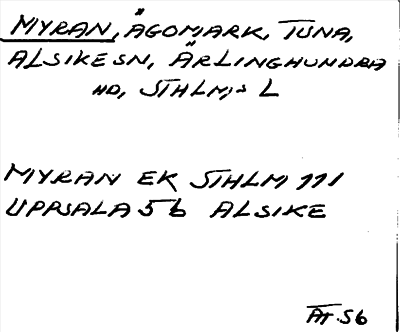 MYRAN, ÄGOMARK, TUNA,
ALSIKE SN, ÄRLINGHUNDRA
HD, STHLM:s L
MYRAN EK STHLM 111
UPPSALA 5 b ALSIKE
ÅT. 56